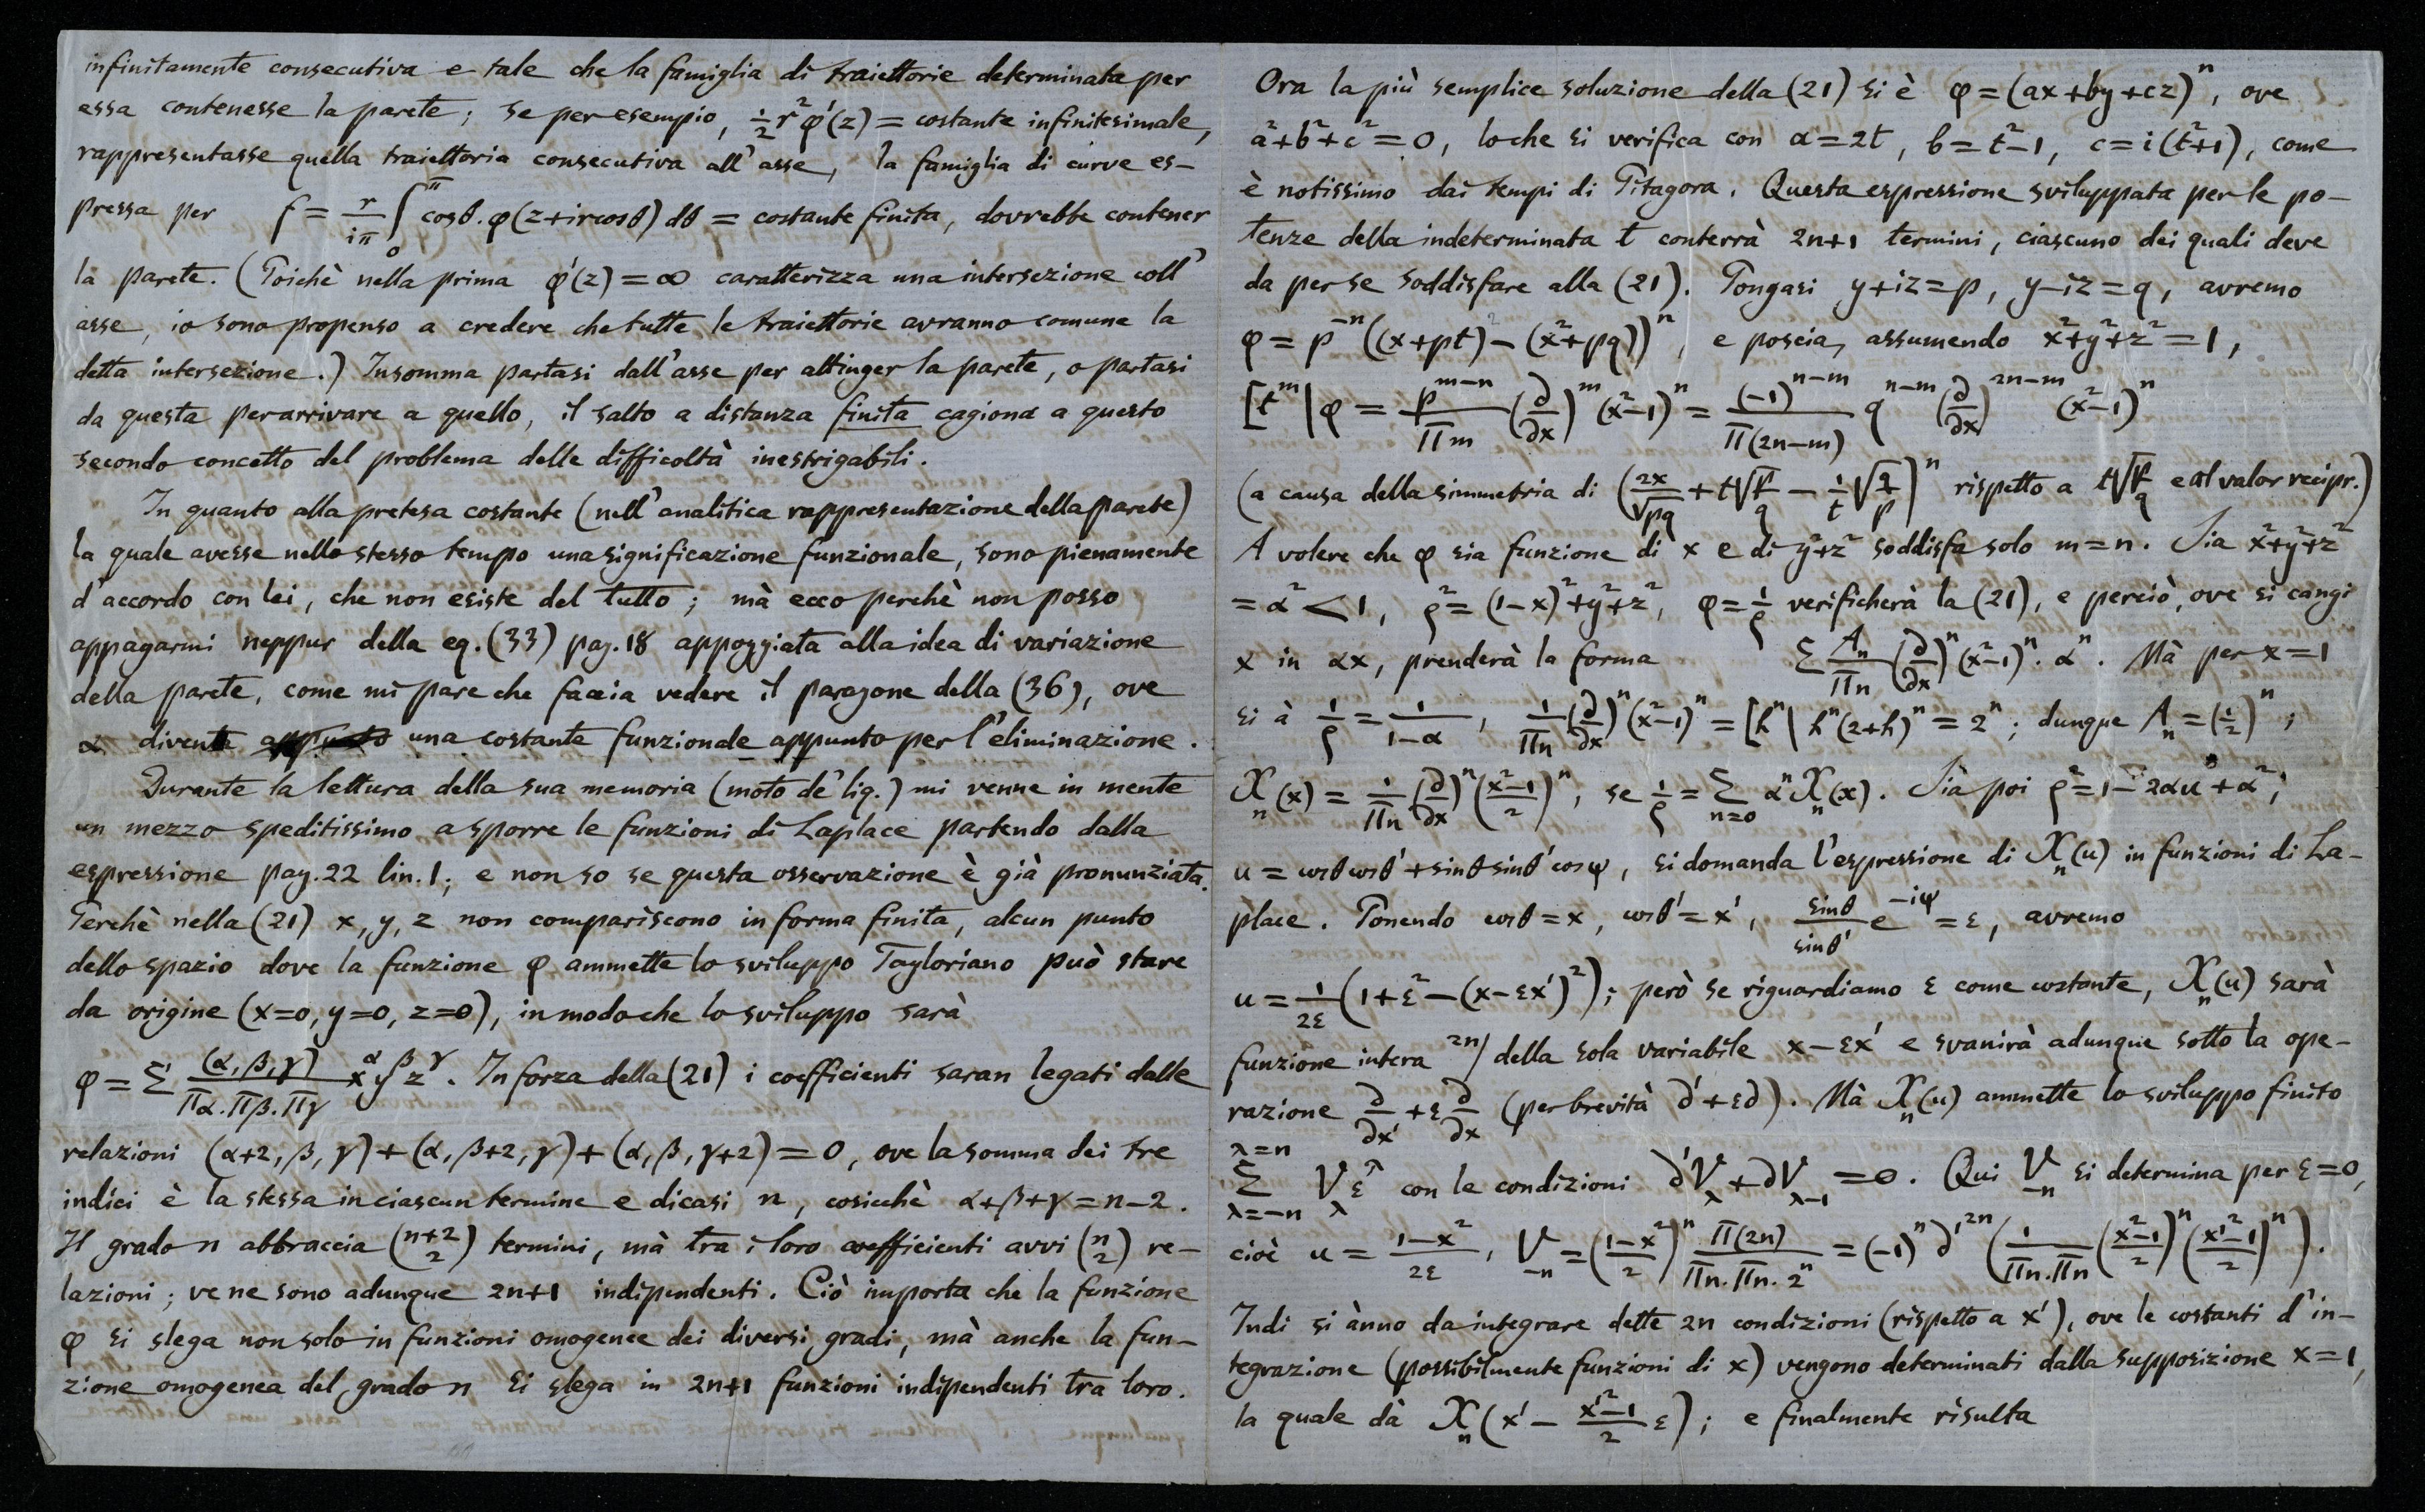 infinitamente consecutiva e tale che la famiglia di traiettorie determinata per
essa contenesse la parete; se per esempio, ½r²φ'(z) = costante infinitesimale,
rappresentasse quella traiettoria consecutiva all'asse, la famiglia di curve es-
pressa per f = r/(iπ) ∫₀^π cosθ.φ(z+ircosθ)dθ = costante finita, dovrebbe contener
la parete. (Poichè nella prima φ'(z) = ∞ caratterizza una intersezione coll'
asse, io sono propenso a credere che tutte le traiettorie avranno comune la
detta intersezione.) Insomma partasi dall'asse per attinger la parete, o partasi
da questa per arrivare a quello, il salto a distanza finita cagiona a questo
secondo concetto del problema delle difficoltà inestrigabili.
In quanto alla pretesa costante (nell'analitica rappresentazione della parete)
la quale avesse nello stesso tempo una significazione funzionale, sono pienamente
d'accordo con lei, che non esiste del tutto; mà ecco perchè non posso
appagarmi neppur della eq. (33) pag. 18 appoggiata alla idea di variazione
della parete, come mi pare che faccia vedere il paragone della (36), ove
α divente appunto una costante funzionale appunto per l'eliminazione.
Durante la lettura della sua memoria (moto de' liq.) mi venne in mente
un mezzo speditissimo a sporre le funzioni di Laplace partendo dalla
espressione pag. 22 lin. 1; e non so se questa osservazione è già pronunziata.
Perchè nella (21) x, y, z non compariscono in forma finita, alcun punto
dello spazio dove la funzione φ ammette lo sviluppo Tayloriano può stare
da origine (x=0, y=0, z=0), in modo che lo sviluppo sarà
φ = Σ (α,β,γ)/(Πα.Πβ.Πγ) x^α y^β z^γ. In forza della (21) i coefficienti saran legati dalle
relazioni (α+2, β, γ) + (α, β+2, γ) + (α, β, γ+2) = 0, ove la somma dei tre
indici è la stessa in ciascun termine e dicasi n, cosicchè α+β+γ = n−2.
Il grado n abbraccia (n+2 2) termini, mà tra i loro coefficienti avvi (n 2) re-
lazioni; ve ne sono adunque 2n+1 indipendenti. Ciò importa che la funzione
φ si slega non solo in funzioni omogenee dei diversi gradi, mà anche la fun-
zione omogenea del grado n si slega in 2n+1 funzioni indipendenti tra loro.
Ora la più semplice soluzione della (21) si è φ = (ax+by+cz)^n, ove
a²+b²+c² = 0, lo che si verifica con a = 2t, b = t²−1, c = i(t²+1), come
è notissimo dai tempi di Pitagora. Questa espressione sviluppata per le po-
tenze della indeterminata t conterrà 2n+1 termini, ciascuno dei quali deve
da per se soddisfare alla (21). Pongasi y+iz = p, y−iz = q, avremo
φ = p^{−n}((x+pt)² − (x²+pq))^n, e poscia, assumendo x²+y²+z² = 1,
[t^m| φ = p^{m−n}/Πm (∂/∂x)^m (x²−1)^n = (−1)^{n−m}/Π(2n−m) q^{n−m} (∂/∂x)^{2n−m} (x²−1)^n
(a causa della simmetria di (2x/√pq + t√(p/q) − (1/t)√(q/p))^n rispetto a t√(p/q) e al valor recipr.)
A volere che φ sia funzione di x e di y²+z² soddisfa solo m=n. Sia x²+y²+z²
= α² < 1, ρ² = (1−x)²+y²+z², φ = 1/ρ verificherà la (21), e perciò, ove si cangi
x in αx, prenderà la forma Σ A_n/Πn (∂/∂x)^n (x²−1)^n.α^n. Mà per x=1
si à 1/ρ = 1/(1−α), 1/Πn (∂/∂x)^n (x²−1)^n = [h^n| h^n(2+h)^n = 2^n; dunque A_n = (½)^n;
X_n(x) = 1/Πn (∂/∂x)^n ((x²−1)/2)^n, se 1/ρ = Σ_{n=0} α^n X_n(x). Sia poi ρ² = 1−2αu+α²;
u = cosθcosθ'+sinθsinθ'cosψ, si domanda l'espressione di X_n(u) in funzioni di La-
place. Ponendo cosθ = x, cosθ' = x', sinθ/sinθ' e^{−iψ} = ε, avremo
u = 1/2ε (1+ε²−(x−εx')²); però se riguardiamo ε come costante, X_n(u) sarà
funzione intera 2n/ della sola variabile x−εx' e svanirà adunque sotto la ope-
razione ∂/∂x' + ε∂/∂x (per brevità ∂'+ε∂). Mà X_n(u) ammette lo sviluppo finito
Σ_{λ=−n}^{λ=n} V_λ ε^λ con le condizioni ∂'V_λ + ∂V_{λ−1} = 0. Qui V_{−n} si determina per ε=0,
cioè u = (1−x²)/2ε, V_{−n} = ((1−x²)/2)^n Π(2n)/(Πn.Πn.2^n) = (−1)^n ∂'^{2n} (1/(Πn.Πn) ((x²−1)/2)^n ((x'²−1)/2)^n).
Indi si ànno da integrare dette 2n condizioni (rispetto a x'), ove le costanti d'in-
tegrazione (possibilmente funzioni di x) vengono determinati dalla supposizione x=1,
la quale dà X_n(x' − (x'²−1)/2 ε); e finalmente risulta